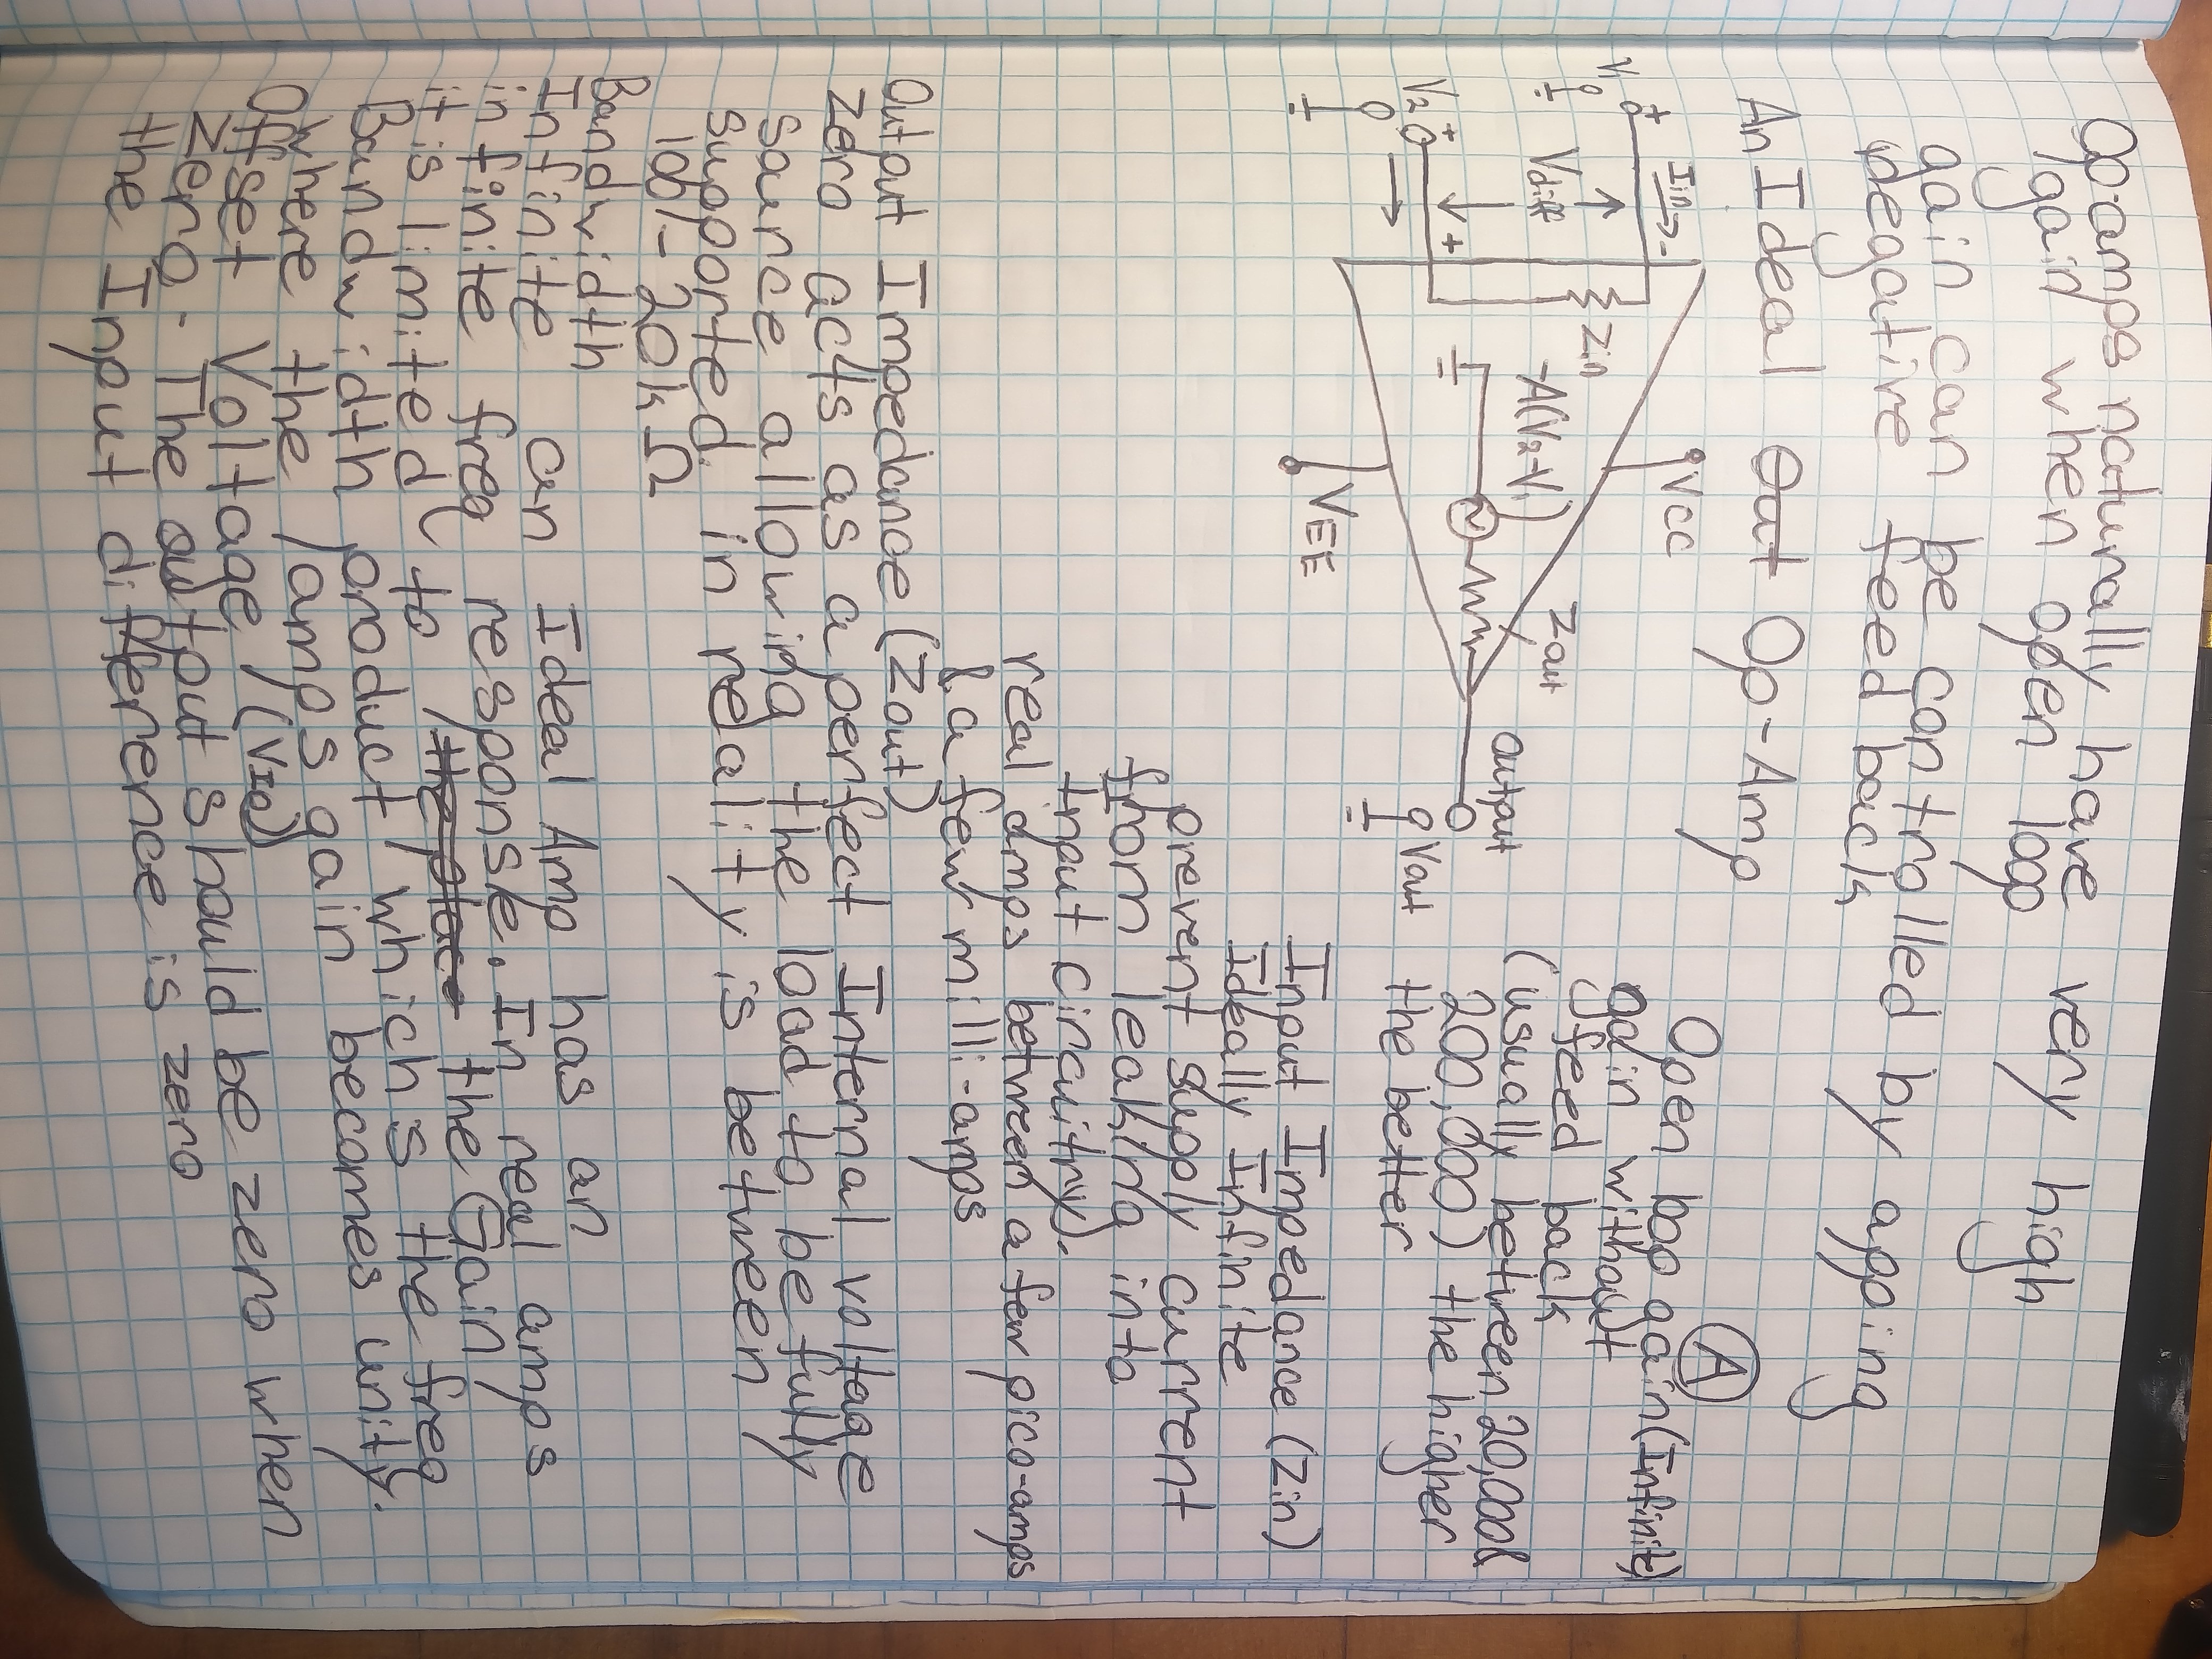 Op-amps naturally have very high
gain when open loop
gain can be controlled by apping
negative feed back
An Ideal Out Op-Amp
Iin
-
VCC
V1
+
Zin
Vdiff
-A(V2-V1)
Zout
Output
V2
+
+
Vout
VEE
A
Open loop gain (Infinite)
gain without
feed back
(usually between 20,000 &
200,000) the higher
the better
Input Impedance (Zin)
Ideally Infinite
prevent supply current
from leaking into
Input circuitry).
real amps between a few pico-amps
& a few milli-amps
Output Impedance (Zout)
zero acts as a perfect Internal voltage
source allowing the load to be fully
supported. in reality is between
100 - 20k Ω
Bandwidth
Infinite an Ideal Amp has an
infinite freq response. In real amps
it is limited to the place the Gain
Bandwidth product which is the freq
where the amps gain becomes unity.
Offset Voltage (VIO)
Zero - The output should be zero when
the Input difference is zero